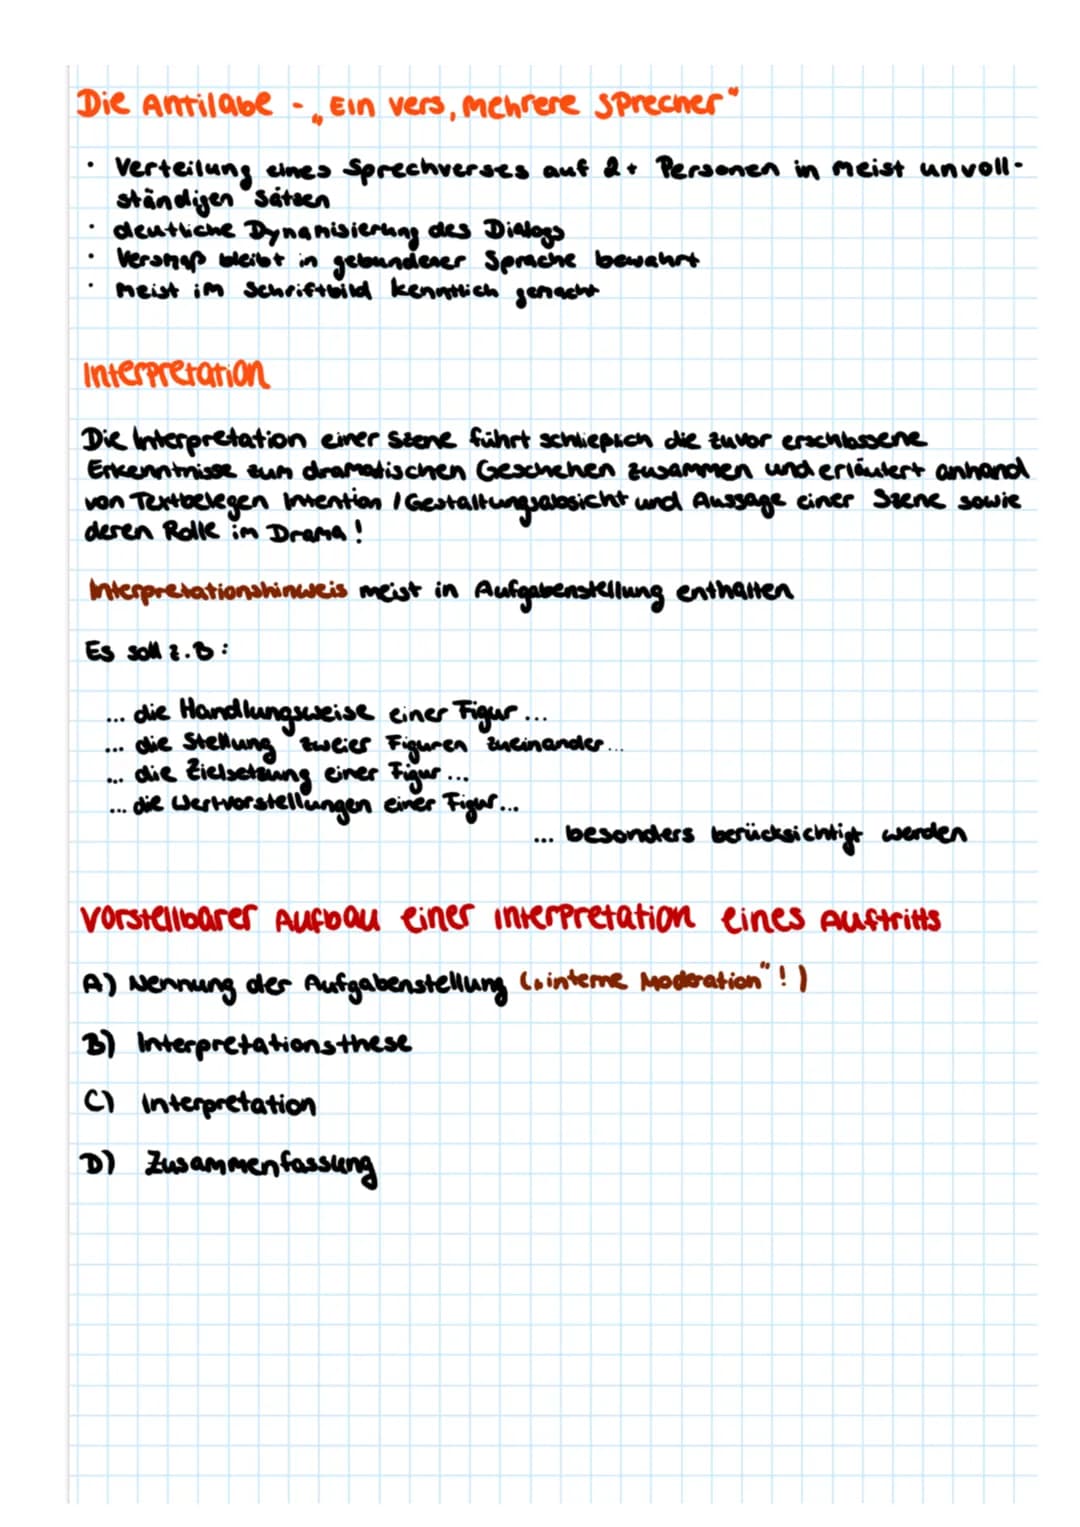 Die Antilabe - „Ein Vers, mehrere Sprecher"
· Verteilung eines Sprechverses auf 2+ Personen in meist unvoll-
ständigen Sätzen
· deutliche Dynamisierung des Dialogs
· Versmaß bleibt in gebundener Sprache bewahrt
· meist im Schriftbild kenntlich gemacht
Interpretation
Die Interpretation einer Szene führt schließlich die zuvor erschlossene
Erkenntnisse zum dramatischen Geschehen zusammen und erläutert anhand
von Textbelegen Intention / Gestaltungsabsicht und Aussage einer Szene sowie
deren Rolle im Drama!
Interpretationshinweis meist in Aufgabenstellung enthalten
Es soll z.B:
... die Handlungsweise einer Figur ...
... die Stellung zweier Figuren zueinander ...
... die Zielsetzung einer Figur ...
... die Wertvorstellungen einer Figur...
... besonders berücksichtigt werden
Vorstellbarer Aufbau einer Interpretation eines Auftritts
A) Nennung der Aufgabenstellung („interne Moderation"!)
B) Interpretationsthese
C) Interpretation
D) Zusammenfassung